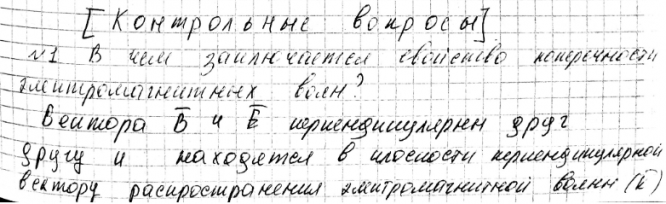 [Контрольные вопросы]
№1 В чем заключается свойство поперечности
электромагнитных волн?
Вектора B̅ и E̅ перпендикулярны друг
другу и находятся в плоскости перпендикулярной
вектору распространения электромагнитной волны (k̅)